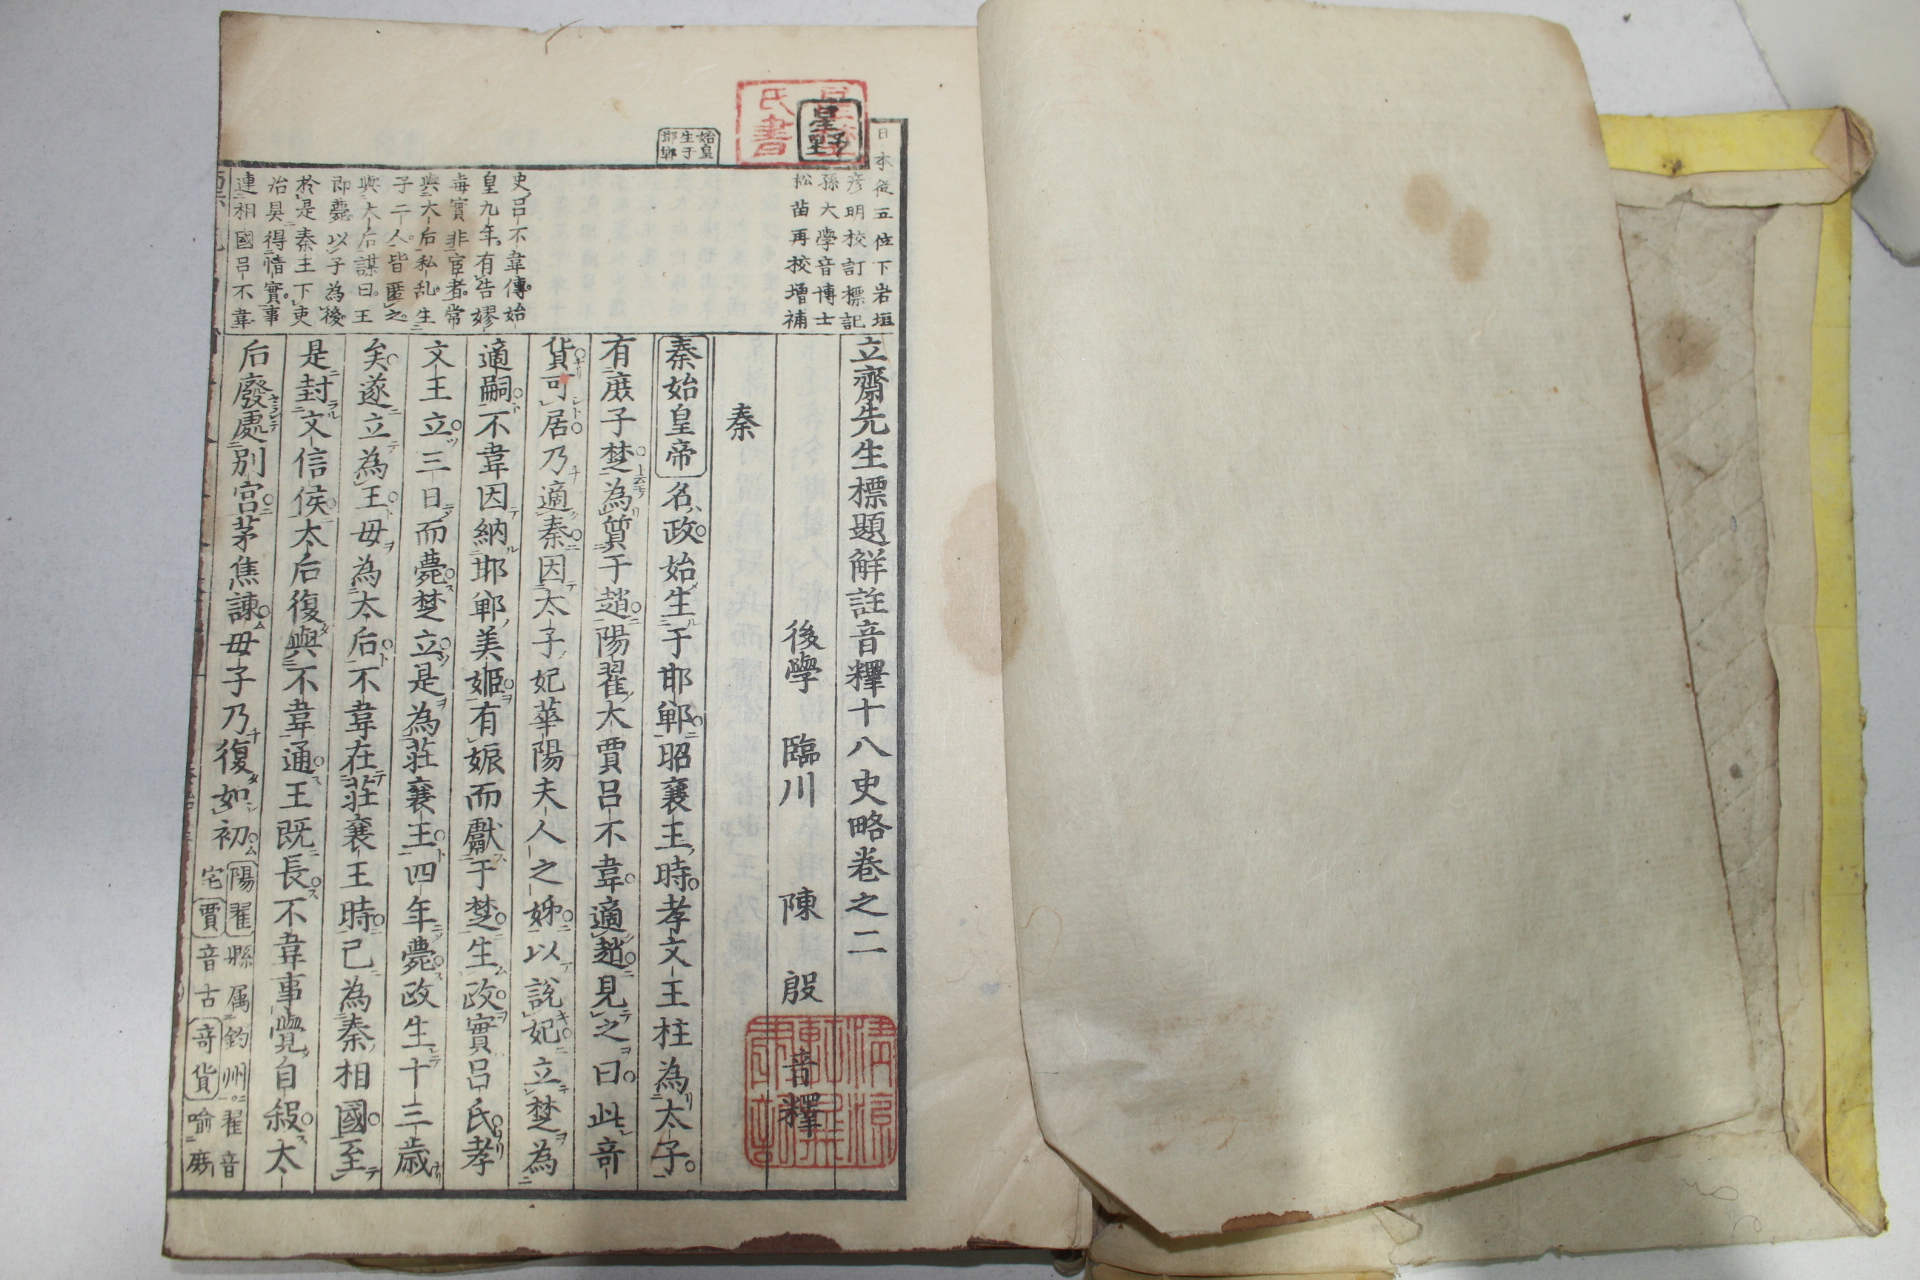 立齋先生標題解註音釋十八史略卷之二
後學 臨川 陳 殷 音釋
秦
秦始皇帝名政始生于邯鄲昭襄王時孝文王柱為太子
有庶子楚為質于趙陽翟大賈呂不韋適趙見之曰此奇
貨可居乃適秦因太子妃華陽夫人之姊以說妃立楚為
適嗣不韋因納邯鄲美姬有娠而獻于楚生政實呂氏孝
文王立三日而薨楚立是為莊襄王四年薨政生十三歲
矣遂立為王母為太后不韋在莊襄王時已為秦相國至
是封文信侯太后復與不韋通王既長不韋事覺自殺太
后廢處別宮茅焦諫母子乃復如初
陽翟縣属鈞州翟音
宅賈音古奇貨喻勝
日本從五位下岩垣
彥明校訂標記
孫大學音博士
松苗再校增補
始皇
生于
邯鄲
史呂不韋傳始
皇九年有告嫪
毐實非宦者常
與大后私乱生
子二人皆匿之
與大后謀曰王
即薨以子為後
於是秦王下吏
治具得情實事
連相國呂不韋
星野
氏書